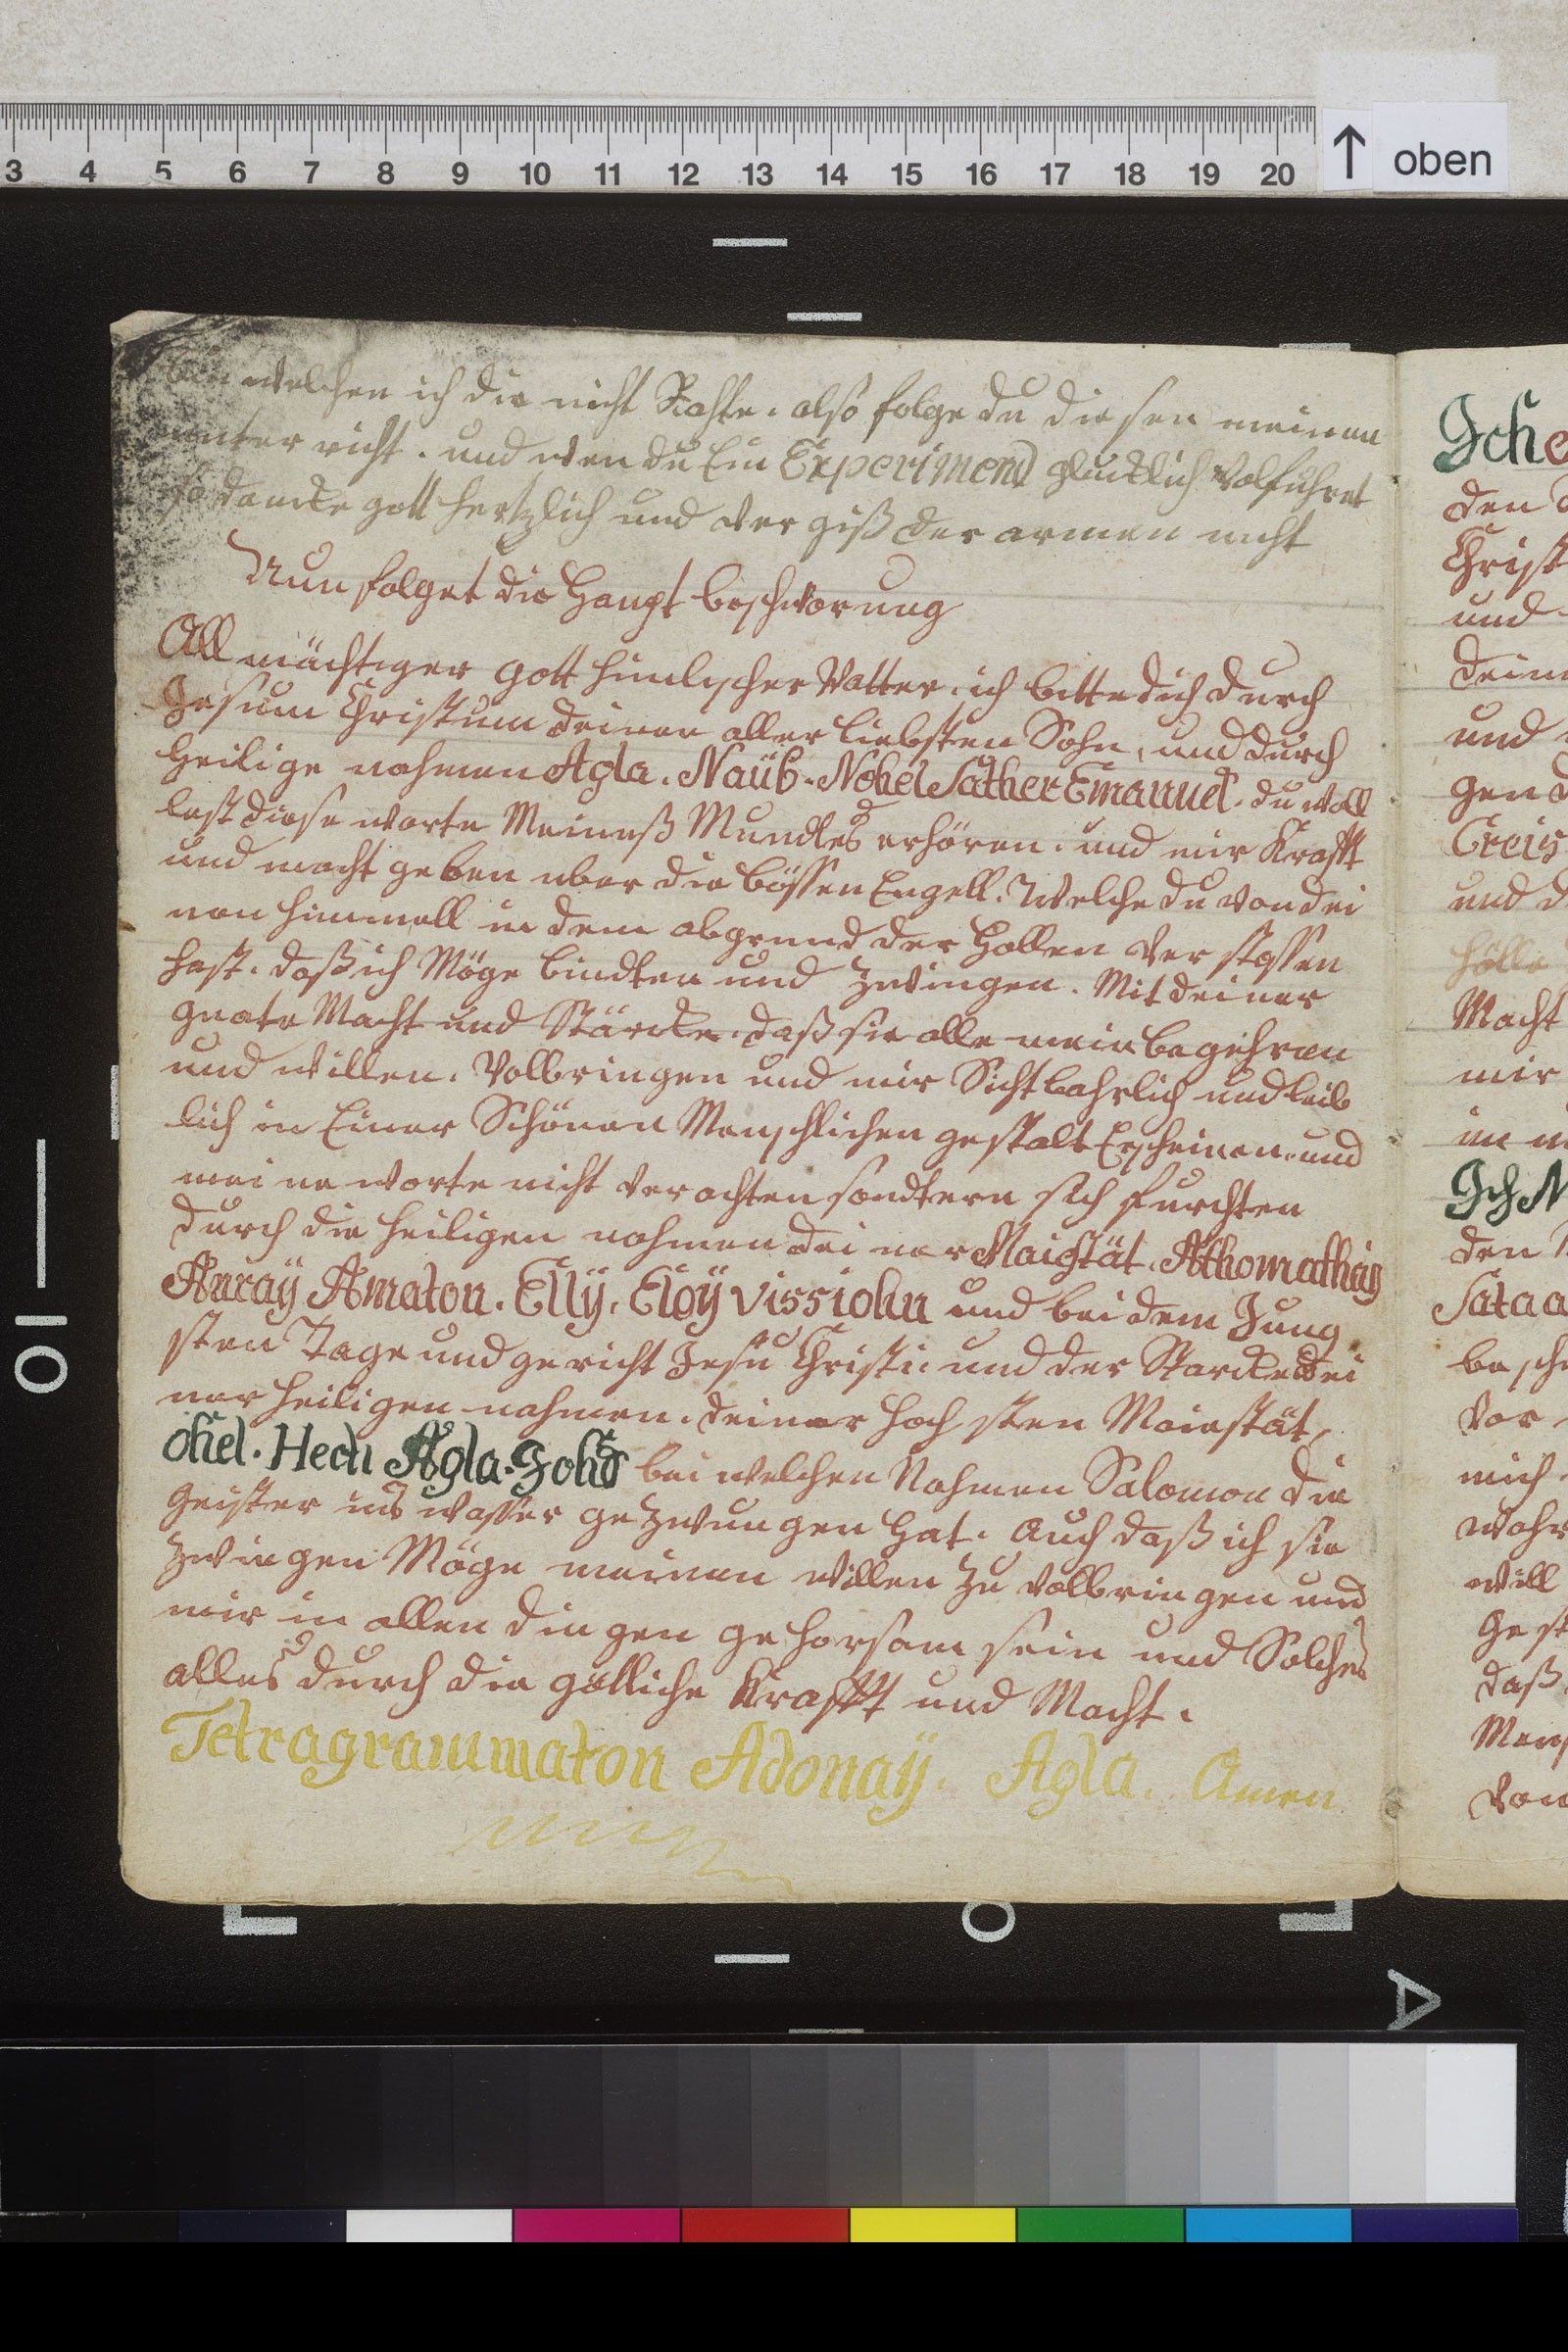 3 4 5 6 7 8 9 10 11 12 13 14 15 16 17 18 19 20 ↑ oben
welchen ich dir nicht Rahte. also folge du diesen meinen
unter richt. und wen du Ein Experimend glucklich volfuhret
so dancke gott hertzlich und ver giß der armen nicht
Nun folget die Haupt beschworung
All mächtiger gott himlischer Vatter. ich bitte dich durch
Jesum Christum deinen aller liebsten Sohn, und durch
heilige nahmen Agla. Naüb. Nobel Sather Emanuel. du woll
lest diese worte Meineß Mundtes erhören. und mir Krafft
und macht geben uber die bössen Engell. Welche du von dei
nen himmell in dem abgrund der Hollen ver stossen
hast. daß ich Möge bindten und Zwingen. Mit deiner
gnate Macht und Stärcke. daß sie alle mein begehren
und willen. Vollbringen und mir Sichtbahrlich und leib
lich in Einer Schönen Menschlichen gestalt Erscheinen. und
mei ne worte nicht verachten sondtern sich furchten
durch die heiligen nahmen dei ner Maigstät. Athomathaÿ
Anraÿ Amaton. Ellÿ. Eloÿ vissiohn und bei dem Jung
sten Tage und gericht Jesu Christi. und der Starcke dei
ner heiligen nahmen. deiner hoch sten Maiestät,
ohel. Hech Agla. bei welchen Nahmen Salomon die
geister ins wasser gezwungen hat. Auch daß ich sie
zwingen Möge meinen willen zu volbringen und
mir in allen dingen gehorsam sein und Solches
alles durch die götliche Krafft und Macht.
Tetragrammaton Adonaÿ. Agla. Amen
Ich
den
Christ
und
dein
und
gen
Creis
und d
hölle
Macht
mir
im
Ich
den
Sata
besch
vor
mich
wahr
will
gest
daß
Mens
von